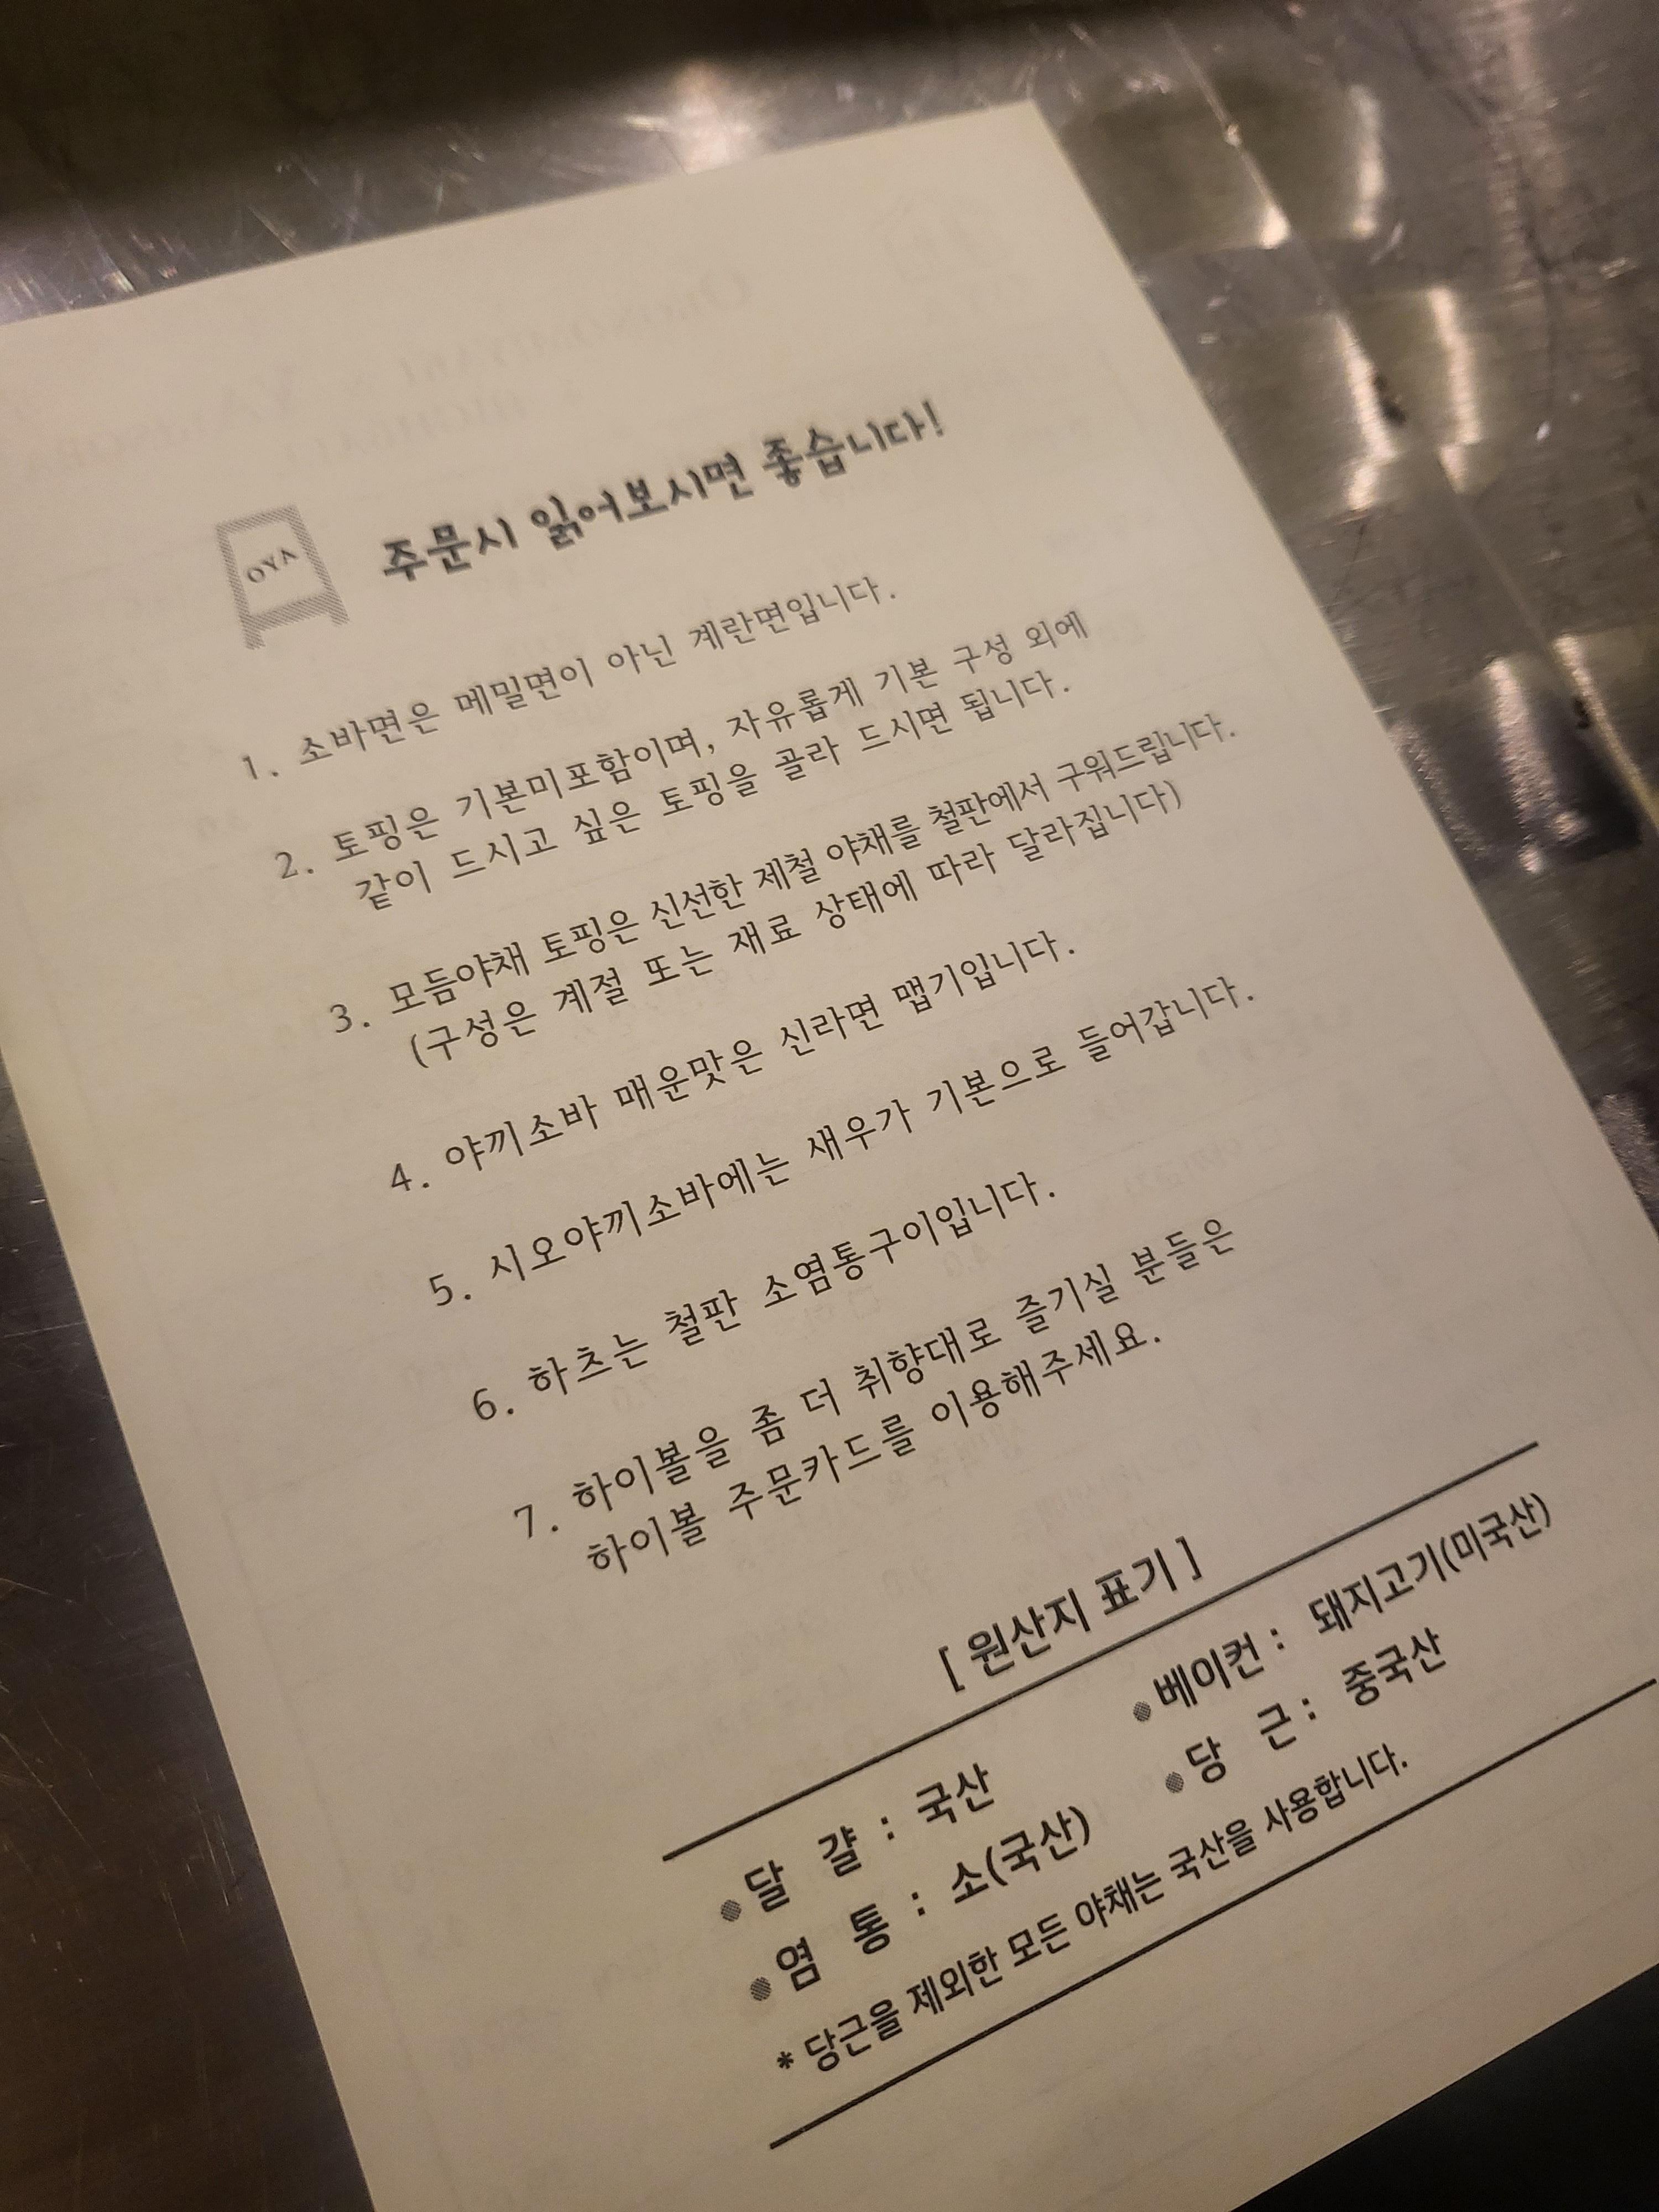 OYA
주문시 읽어보시면 좋습니다!
1. 소바면은 메밀면이 아닌 계란면입니다.
2. 토핑은 기본미포함이며, 자유롭게 기본 구성 외에
같이 드시고 싶은 토핑을 골라 드시면 됩니다.
3. 모듬야채 토핑은 신선한 제철 야채를 철판에서 구워드립니다.
(구성은 계절 또는 재료 상태에 따라 달라집니다)
4. 야끼소바 매운맛은 신라면 맵기입니다.
5. 시오야끼소바에는 새우가 기본으로 들어갑니다.
6. 하츠는 철판 소염통구이입니다.
7. 하이볼을 좀 더 취향대로 즐기실 분들은
하이볼 주문카드를 이용해주세요.
[ 원산지 표기 ]
●달 걀 : 국산 ●베이컨 : 돼지고기(미국산)
●염 통 : 소(국산) ●당 근 : 중국산
* 당근을 제외한 모든 야채는 국산을 사용합니다.